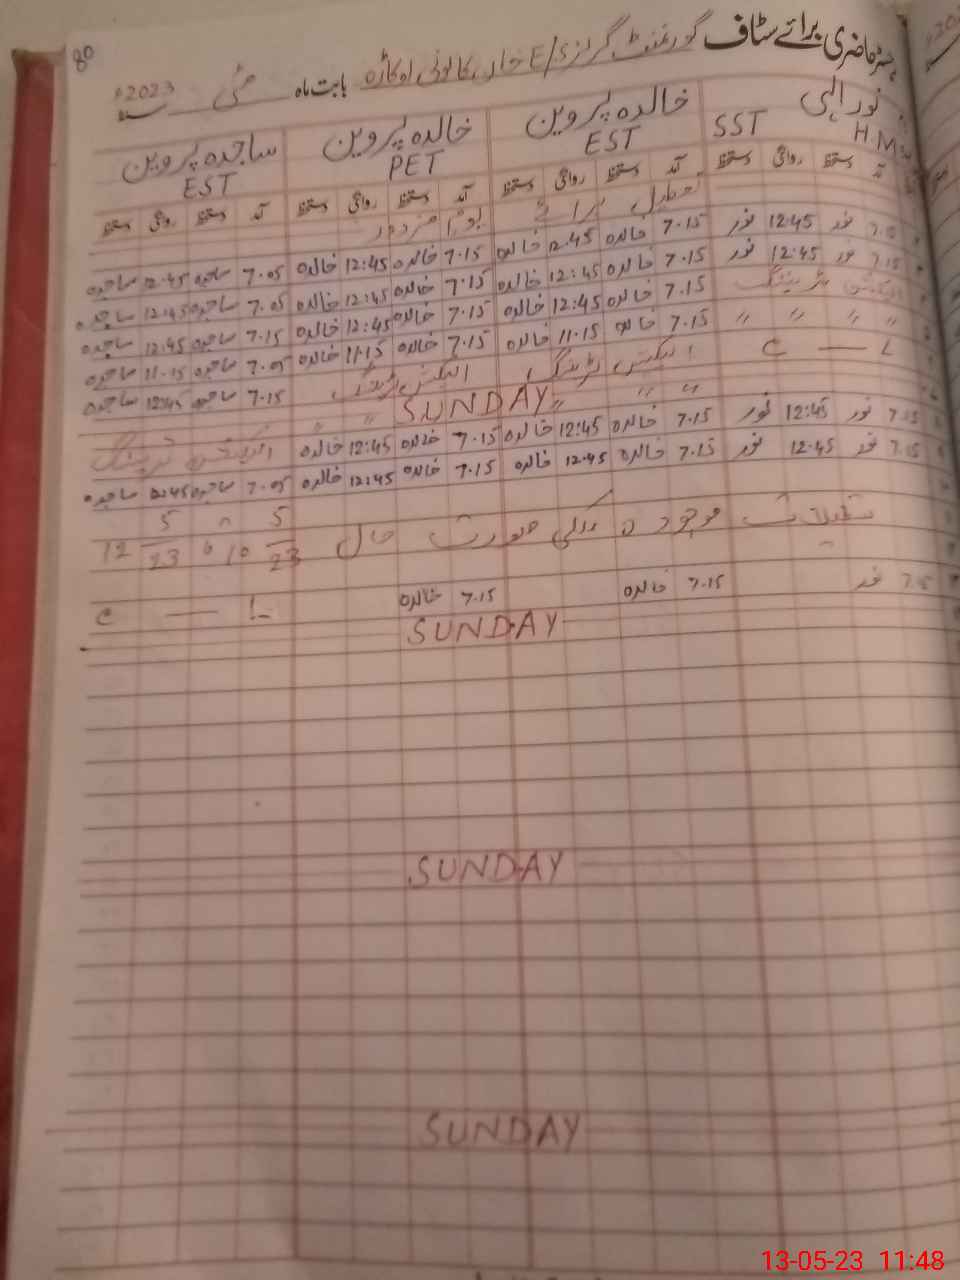 80
رجسٹر حاضری برائے سٹاف گورنمنٹ گرلز E/S کالونی اوکاڑہ بابت ماہ مئی 2023ء
نور الہی خالدہ پروین خالدہ پروین ساجدہ پروین
H.M SST EST PET EST
آمد دستخط روانگی دستخط آمد دستخط روانگی دستخط آمد دستخط روانگی دستخط آمد دستخط روانگی دستخط
تعطیل برائے یوم مزدور
7.15 نور 12:45 نور 7.15 خالدہ 12:45 خالدہ 7.15 خالدہ 12:45 خالدہ 7.05 ساجدہ 12:45 ساجدہ
7.15 نور 12:45 نور 7.15 خالدہ 12:45 خالدہ 7.15 خالدہ 12:45 خالدہ 7.05 ساجدہ 12:45 ساجدہ
الیکشن ٹریننگ 7.15 خالدہ 12:45 خالدہ 7.15 خالدہ 12:45 خالدہ 7.15 ساجدہ 12:45 ساجدہ
〃 〃 〃 〃 7.15 خالدہ 11.15 خالدہ 7.15 خالدہ 11.15 خالدہ 7.05 ساجدہ 11.15 ساجدہ
L — C الیکشن ٹریننگ الیکشن ٹریننگ 7.15 ساجدہ 12:45 ساجدہ
SUNDAY 〃 〃 〃 〃
7.15 نور 12:45 نور 7.15 خالدہ 12:45 خالدہ 7.15 خالدہ 12:45 خالدہ الیکشن ٹریننگ
7.15 نور 12.45 نور 7.15 خالدہ 12.45 خالدہ 7.15 خالدہ 12:45 خالدہ 7.05 ساجدہ 12:45 ساجدہ
تعطیلات موجودہ ملکی صورت حال 10 5/23 12 5/23
7.15 نور 7.15 خالدہ 7.15 خالدہ L — C
SUNDAY
SUNDAY
SUNDAY
13-05-23 11:48